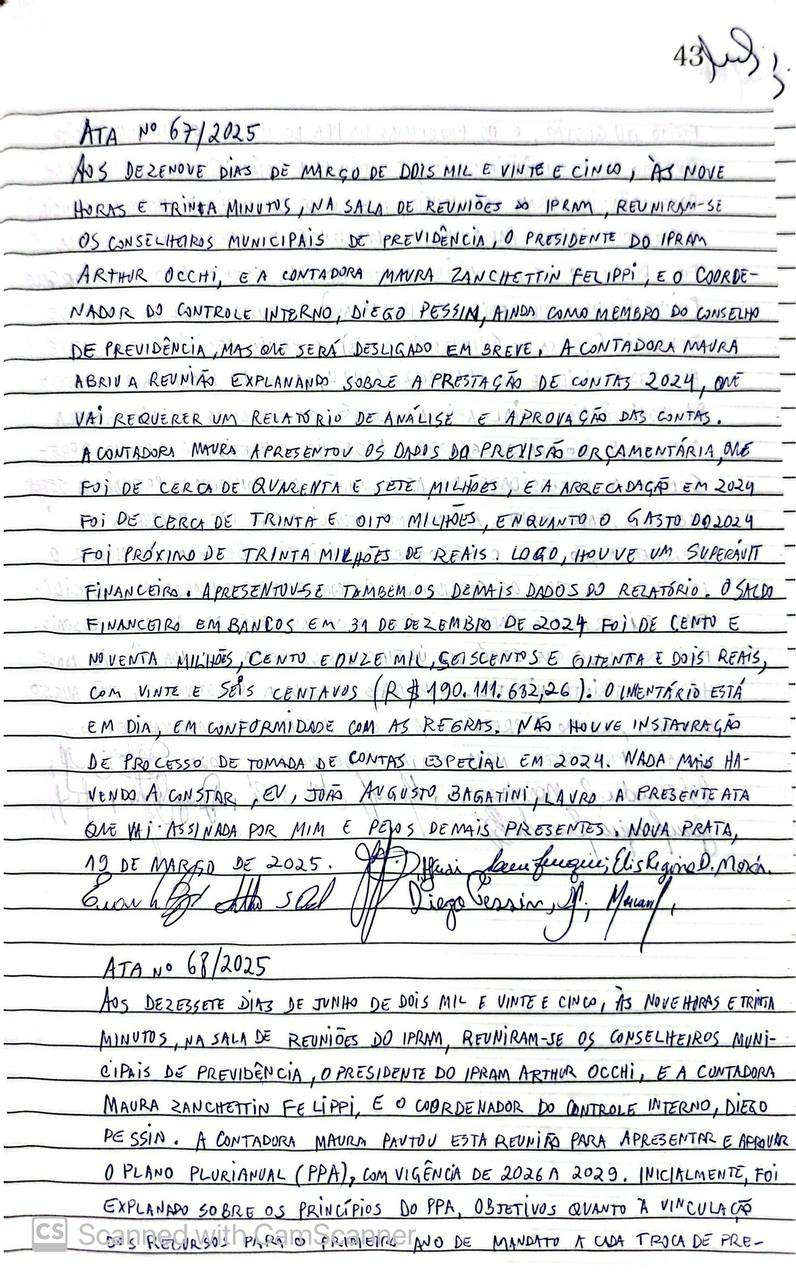 43
ATA Nº 67/2025
AOS DEZENOVE DIAS DE MARÇO DE DOIS MIL E VINTE E CINCO, ÀS NOVE
HORAS E TRINTA MINUTOS, NA SALA DE REUNIÕES DO IPRAM, REUNIRAM-SE
OS CONSELHEIROS MUNICIPAIS DE PREVIDÊNCIA, O PRESIDENTE DO IPRAM
ARTHUR OCCHI, E A CONTADORA MAURA ZANCHETTIN FELIPPI, E O COORDE-
NADOR DO CONTROLE INTERNO, DIEGO PESSIN, AINDA COMO MEMBRO DO CONSELHO
DE PREVIDÊNCIA, MAS QUE SERÁ DESLIGADO EM BREVE. A CONTADORA MAURA
ABRIU A REUNIÃO EXPLANANDO SOBRE A PRESTAÇÃO DE CONTAS 2024, QUE
VAI REQUERER UM RELATÓRIO DE ANÁLISE E APROVAÇÃO DAS CONTAS.
A CONTADORA MAURA APRESENTOU OS DADOS DA PREVISÃO ORÇAMENTÁRIA, QUE
FOI DE CERCA DE QUARENTA E SETE MILHÕES, E A ARRECADAÇÃO EM 2024
FOI DE CERCA DE TRINTA E OITO MILHÕES, ENQUANTO O GASTO DO 2024
FOI PRÓXIMO DE TRINTA MILHÕES DE REAIS. LOGO, HOUVE UM SUPERÁVIT
FINANCEIRO. APRESENTOU-SE TAMBEM OS DEMAIS DADOS DO RELATÓRIO. O SALDO
FINANCEIRO EM BANCOS EM 31 DE DEZEMBRO DE 2024 FOI DE CENTO E
NOVENTA MILHÕES, CENTO E ONZE MIL, SEISCENTOS E OITENTA E DOIS REAIS,
COM VINTE E SEIS CENTAVOS (R$ 190.111.632,26). O INENTÁRIO ESTÁ
EM DIA, EM CONFORMIDADE COM AS REGRAS. NÃO HOUVE INSTAURAÇÃO
DE PROCESSO DE TOMADA DE CONTAS ESPECIAL EM 2024. NADA MAIS HA-
VENDO A CONSTAR, EU, JOÃO AUGUSTO BAGATINI, LAVRO A PRESENTE ATA
QUE VAI ASSINADA POR MIM E PELOS DEMAIS PRESENTES. NOVA PRATA,
19 DE MARÇO DE 2025. Elis Regina D. Morá.
Diego Pessin,
ATA Nº 68/2025
AOS DEZESSETE DIAS DE JUNHO DE DOIS MIL E VINTE E CINCO, ÀS NOVE HORAS E TRINTA
MINUTOS, NA SALA DE REUNIÕES DO IPRAM, REUNIRAM-SE OS CONSELHEIROS MUNI-
CIPAIS DE PREVIDÊNCIA, O PRESIDENTE DO IPRAM ARTHUR OCCHI, E A CONTADORA
MAURA ZANCHETTIN FELIPPI, E O COORDENADOR DO CONTROLE INTERNO, DIEGO
PESSIN. A CONTADORA MAURA PAUTOU ESTA REUNIÃO PARA APRESENTAR E APROVAR
O PLANO PLURIANUAL (PPA), COM VIGÊNCIA DE 2026 A 2029. INICIALMENTE, FOI
EXPLANADO SOBRE OS PRINCÍPIOS DO PPA, OBJETIVOS QUANTO À VINCULAÇÃO
DOS RECURSOS PARA O PRIMEIRO ANO DE MANDATO A CADA TROCA DE PRE-
CS Scanned with CamScanner